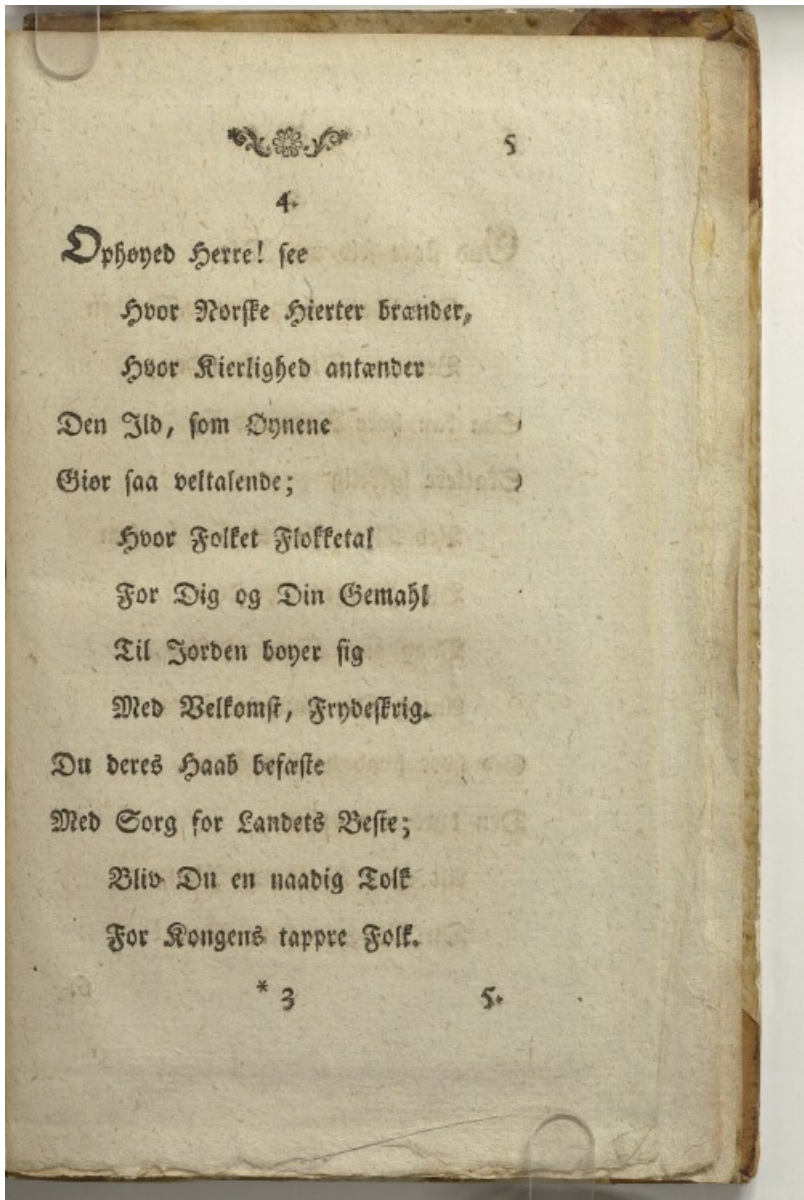 5
4.
Ophøyed Herre! see
Hvor Norske Hierter brænder,
Hvor Kierlighed antænder
Den Ild, som Øynene
Giør saa veltalende;
Hvor Folket Flokketal
For Dig og Din Gemahl
Til Jorden boyer sig
Med Velkomst, Frydeskrig.
Du deres Haab befæste
Med Sorg for Landets Beste;
Bliv Du en naadig Tolk
For Kongens tappre Folk.
* 3 5.